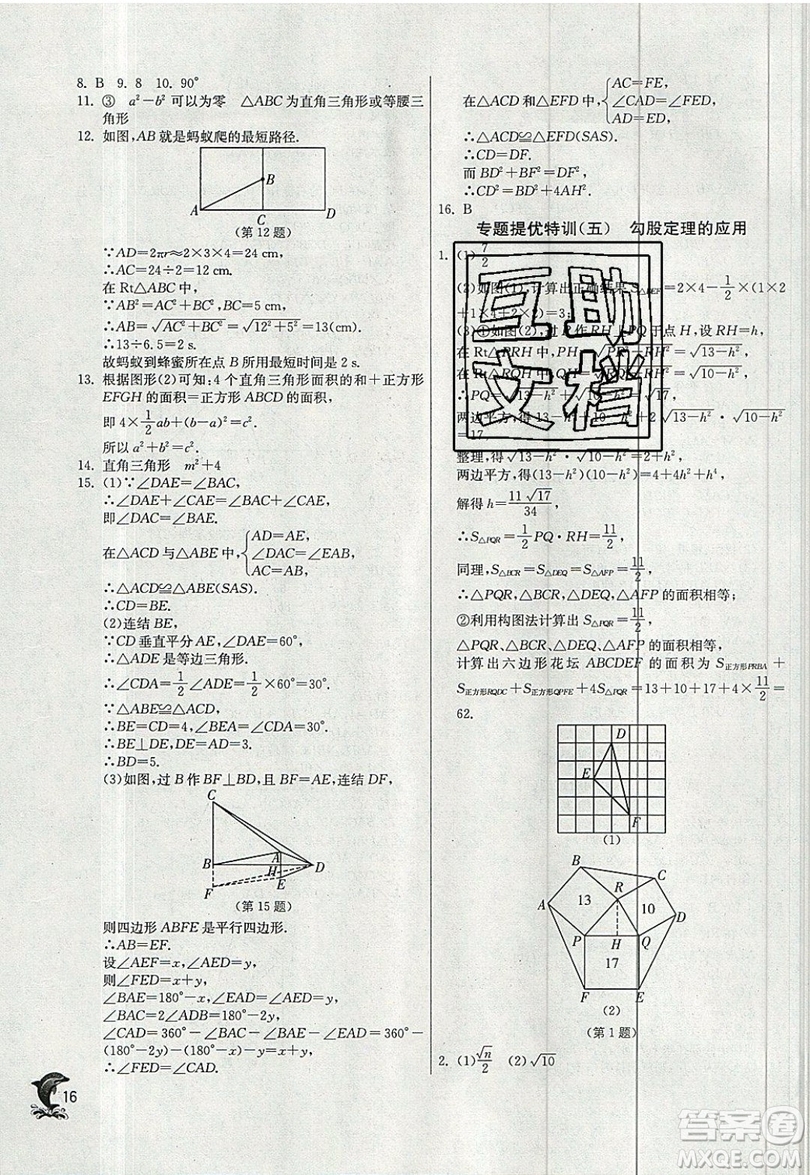 8. B 9. 8 10. 90°
11. ③ a²－b² 可以为零 △ABC 为直角三角形或等腰三
角形
12. 如图,AB 就是蚂蚁爬的最短路径.
B
A
C
D
(第 12 题)
∵AD=2πr≈2×3×4=24(cm),
∴AC=24÷2=12(cm).
在 Rt△ABC 中,
∵AB²=AC²+BC²,BC=5 cm,
∴AB=√(AC²+BC²)=√(12²+5²)=13(cm).
∴13÷6.5=2(s).
故蚂蚁到蜂蜜所在点 B 所用最短时间是 2 s.
13. 根据图形(2)可知:4 个直角三角形面积的和+正方形
EFGH 的面积=正方形 ABCD 的面积,
即 4×1/2 ab+(b-a)²=c².
所以 a²+b²=c².
14. 直角三角形 m²+4
15. (1)∵∠DAE=∠BAC,
∴∠DAE+∠CAE=∠BAC+∠CAE,
即∠DAC=∠BAE.
在△ACD 与△ABE 中,
AD=AE,
∠DAC=∠BAE,
AC=AB,
∴△ACD≌△ABE(SAS).
∴CD=BE.
(2)连结 BE,
∵CD 垂直平分 AE,∠DAE=60°,
∴△ADE 是等边三角形.
∴∠CDA=1/2∠ADE=1/2×60°=30°.
∵△ABE≌△ACD,
∴BE=CD=4,∠BEA=∠CDA=30°,
∴BE⊥DE,DE=AD=3.
∴BD=5.
(3)如图,过 B 作 BF⊥BD,且 BF=AE,连结 DF,
C
B
A
H
D
F
E
(第 15 题)
则四边形 ABFE 是平行四边形.
∴AB=EF.
设∠AEF=x,∠AED=y,
则∠FED=x+y,
∠BAE=180°-x,∠EAD=∠AED=y,
∠BAC=2∠ADB=180°-2y,
∠CAD=360°-∠BAC-∠BAE-∠EAD=360°-
(180°-2y)-(180°-x)-y=x+y,
∴∠FED=∠CAD.
16
在△ACD 和△EFD 中,
AC=FE,
∠CAD=∠FED,
AD=ED,
∴△ACD≌△EFD(SAS).
∴CD=DF.
而 BD²+BF²=DF²,
∴CD²=BD²+4AH².
16. B
专题提优特训(五) 勾股定理的应用
1. (1) 7/2
(2)如图(1),计算出正确结果 S△DEF=2×4-1/2(1×2
+4×1+2×2)=3;
(3)①如图(2),过 R 作 RH⊥PQ 于点 H,设 RH=h,
在 Rt△PRH 中,PH=√(13-h²),
在 Rt△RQH 中,QH=√(10-h²),
∴PQ=√(13-h²)+√(10-h²)=√17,
两边平方,得 13-h²+10-h²+2√(13-h²)·√(10-h²)
=17,
整理,得√(13-h²)·√(10-h²)=2+h²,
两边平方,得(13-h²)(10-h²)=4+4h²+h⁴,
解得 h=11√17/34,
∴S△PQR=1/2 PQ·RH=11/2,
同理,S△BCR=S△DEQ=S△AFP=11/2,
∴△PQR,△BCR,△DEQ,△AFP 的面积相等;
②利用构图法计算出 S△PQR=11/2,
△PQR、△BCR、△DEQ、△AFP 的面积相等,
计算出六边形花坛 ABCDEF 的面积为 S正方形PRBA+
S正方形RQDC+S正方形QPFE+4S△PQR=13+10+17+4×11/2=
62.
D
E
F
(1)
B
C
A
R
13
10
D
P
H
Q
17
F
E
(2)
(第 1 题)
2. (1)√n/2 (2)√10
互助
文档
答案圈
MXQE.COM